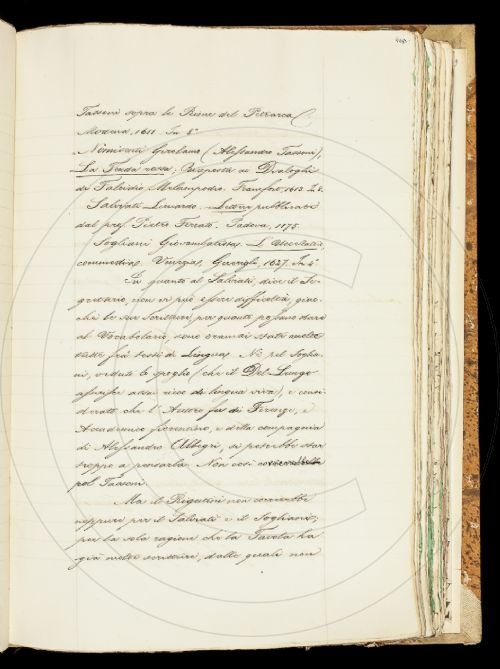 Tassoni sopra le Rime del Petrarca.
Modena, 1611. In 8°
Nomisenti Girolamo (Alessandro Tassoni),
La Tenda rossa, Risposta ai Dialoghi
di Falcidio Melampodio. Francfort, 1613. In 8.
Salviati Lionardo. Lettere pubblicate
dal prof. Pietro Ferrato. Padova, 1875.
Sogliani Giovambatista. L'Uccellatoio,
commedia. Venezia, Guerigli, 1627. In 4°
In quanto al Salviati, dice il Se-
gretario, non vi può esser difficoltà, giac-
chè le sue scritture, per quanto possano dare
al Vocabolario, sono oramai state
tutte fra testi di Lingua. Nè pel Soglia-
ni, vedute le spoglie (che il Del Lungo
assai ricco di lingua viva), e consi-
derato che l'Autore fu di Firenze, e
Accademico fiorentino, e della compagnia
di Alessandro Allegri, si potrebbe star
troppo a pensarla. Non così
pel Tassoni.
Ma il Rigutini non vorrebbe
neppure per il Salviati e il Sogliani;
per la sola ragione che la Tavola ha
già molte scritture, dalle quali non